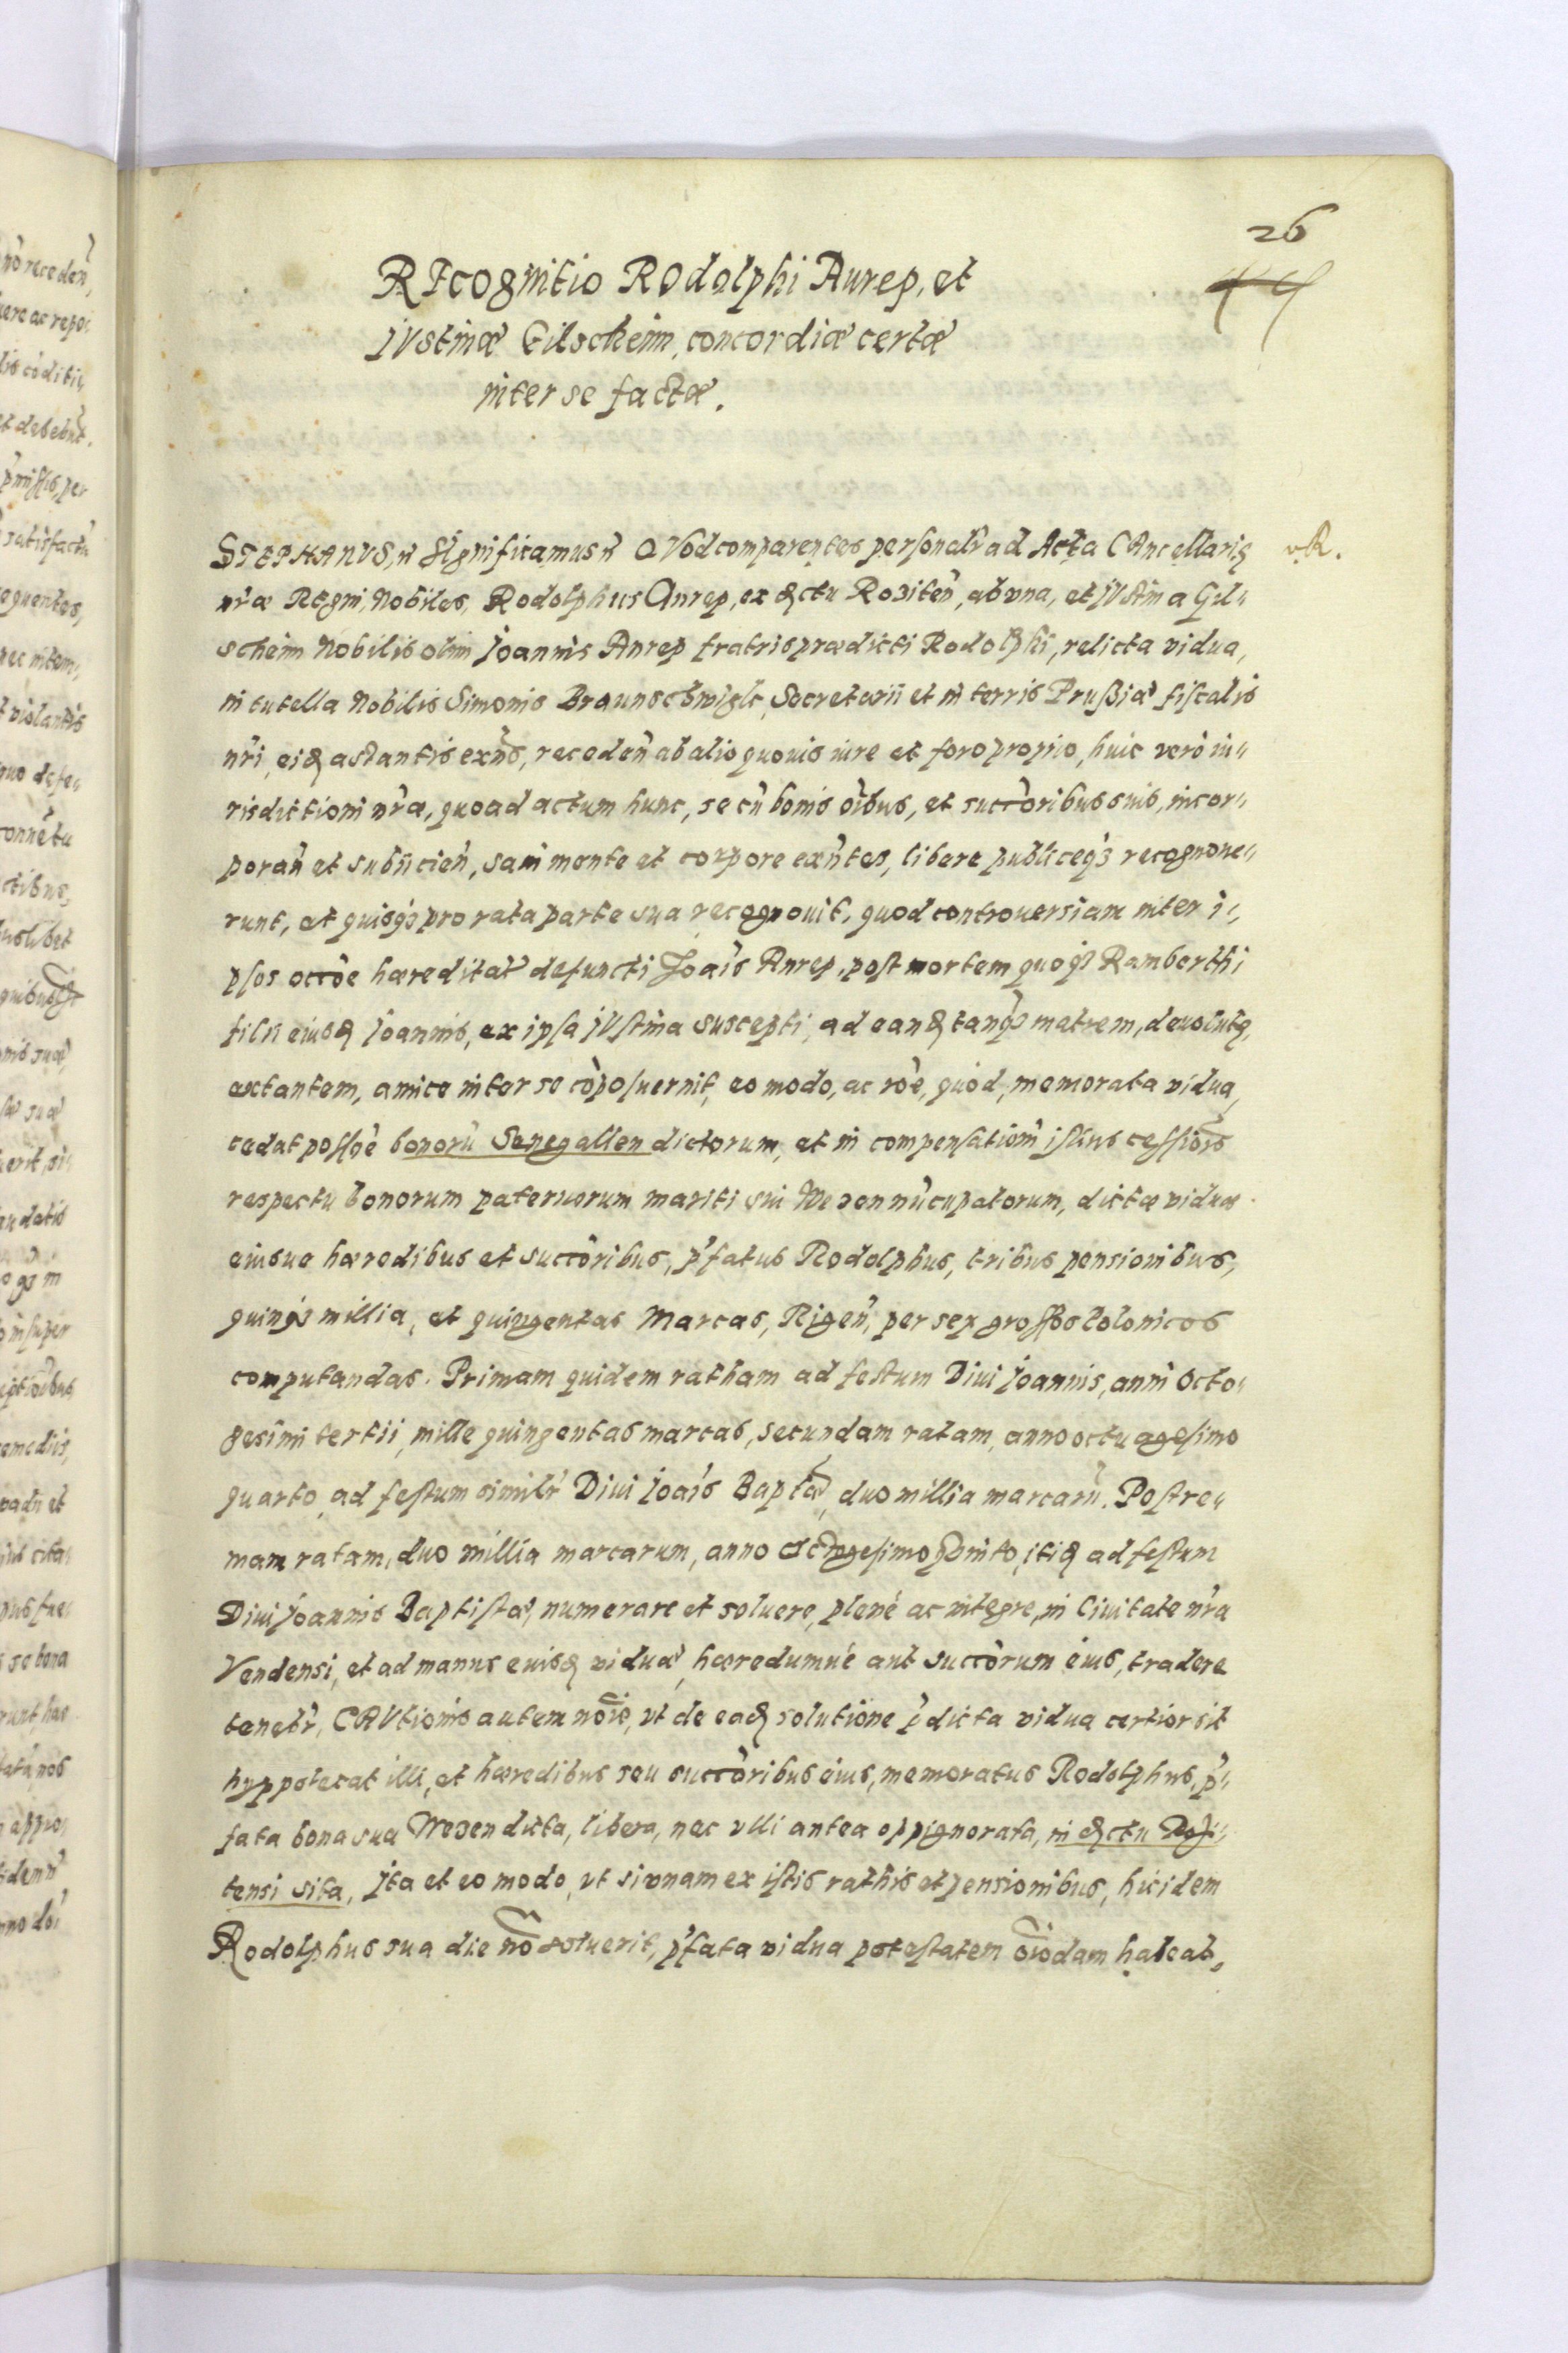 26
44
REcognitio Rodolphi Anrep, et
jVstinæ Gilscheim, concordiæ certæ
inter se factæ.
STEPHANVS, n̄ significamus n̄ QVod comparentes personalr̄ ad Acta CAncellarię
vR.
nr̄æ REgni, Nobiles, Rodolphus Anrep, ex dictu Roziten̄, ab vna, et jVstina Gil„
scheim Nobilis olim Joannis Anrep fratris prædicti Rodolphi, relicta vidua,
in tutella Nobilis Simonis Braunschwigk, Secretarii et in terris Prussiæ fiscalis
nr̄i, eiq astantis exn̄s, receden̄ ab alio quouis iure et foro proprio, huic vero iu„
risdictioni nr̄æ, quoad actum hunc, se cū bonis oībus, et succ̄oribus suis, incor„
poran̄ et subiicien̄, sani mente et corpore exn̄tes, libere publiceq₃ recognoue„
runt, et quisq₃ pro rata parte sua recognouit, quod controuersiam inter i„
psos occōe hæreditat̄ defuncti Joaīs Anrep, post mortem quoq₃ Ramberthi
filii eiusq Joannis, ex ipsa jVstina suscepti, ad eanq tanq₃ matrem, deuolutę,
extantem, amice inter se cōposuernit, eo modo, ac rōe, quod, memorata vidua,
cedat possōe bonorū Senegallen dictorum, et in compensationē istius cessiōis
respectu bonorum paternorum mariti sui Wezen nūcupatorum, dictæ viduæ
eiusue hæredibus et succ̄oribus, p̄fatus Rodolphus, tribus pensionibus,
quinq₃ millia, et quingentas Marcas, Rigen̄, per sex grossos Polonicos
computandas. Primam quidem ratham ad festum Diui Joannis, anni octo„
gesimi tertii, mille quingentas marcas, secundam ratam, anno octuagesimo
quarto, ad festum similr̄ Diui Joaīs Baptæ, duo millia marcarū. Postre„
mam ratam, duo millia marcarum, anno octogesimo quinto, itiq ad festum
Diui Joannis Baptistæ, numerare et soluere, plene ac integre, in Ciuitate nr̄a
Vendensi, et ad manus euisq viduæ, hæredumue aut succ̄orum eius, tradere
tenebr̄, CAVtionis autem noīe, vt de eaq solutione p̄dicta vidua certior sit
hyppotecat illi, et hæredibus seu succ̄oribus eius, memoratus Rodolphus, p̄„
fata bona sua Wezen dicta, libera, nec vlli antea oppignorata, in dictu Rosi„
tensi sita, Jta et eo modo, vt si vnam ex istis rathis et pensionibus, hic idem
Rodolphus sua die nō soluerit, p̄fata vidua potestatem oīodam habeat,